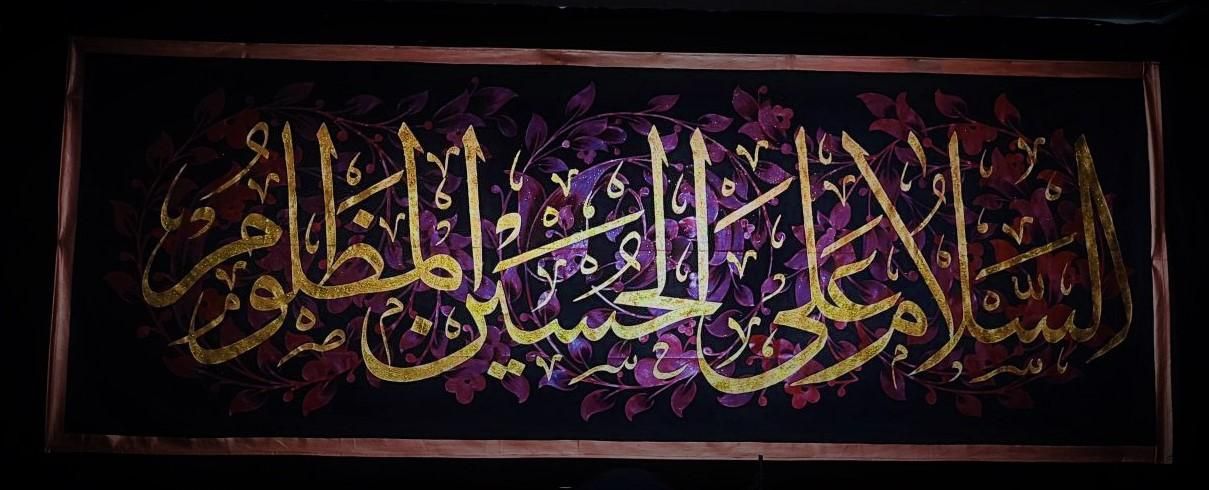 السَّلامُ عَلَى الحُسَيْنِ المَظْلُومِ